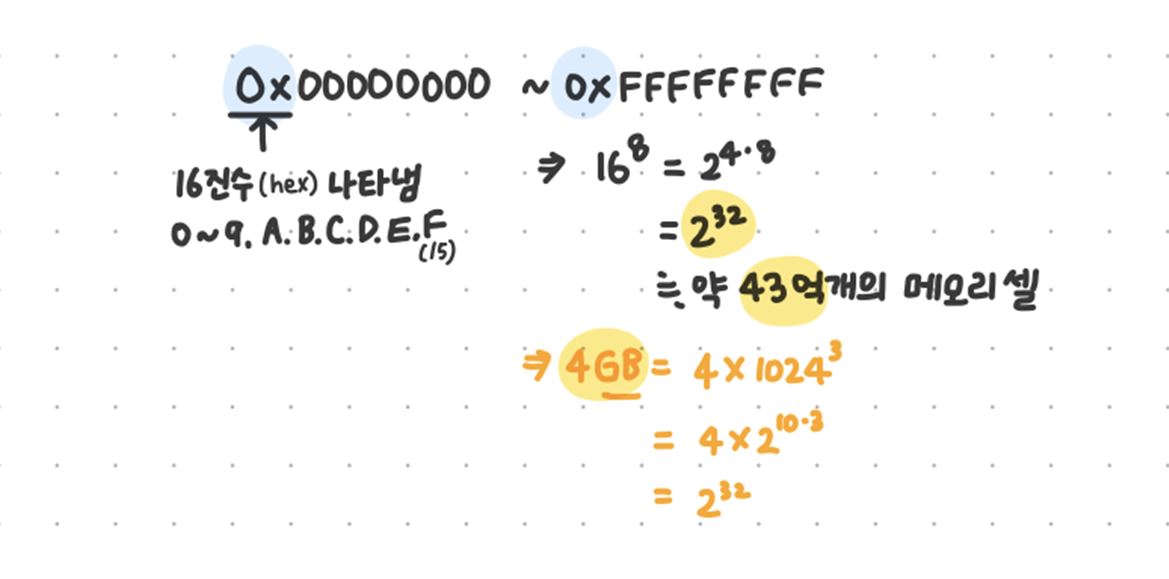 0x00000000 ~ 0xFFFFFFFF
⇒ 16⁸ = 2⁴·⁸
16진수(hex) 나타냄
0~9. A.B.C.D.E.F
(15)
= 2³²
≒ 약 43억개의 메모리 셀
⇒ 4GB = 4 × 1024³
= 4 × 2¹⁰·³
= 2³²